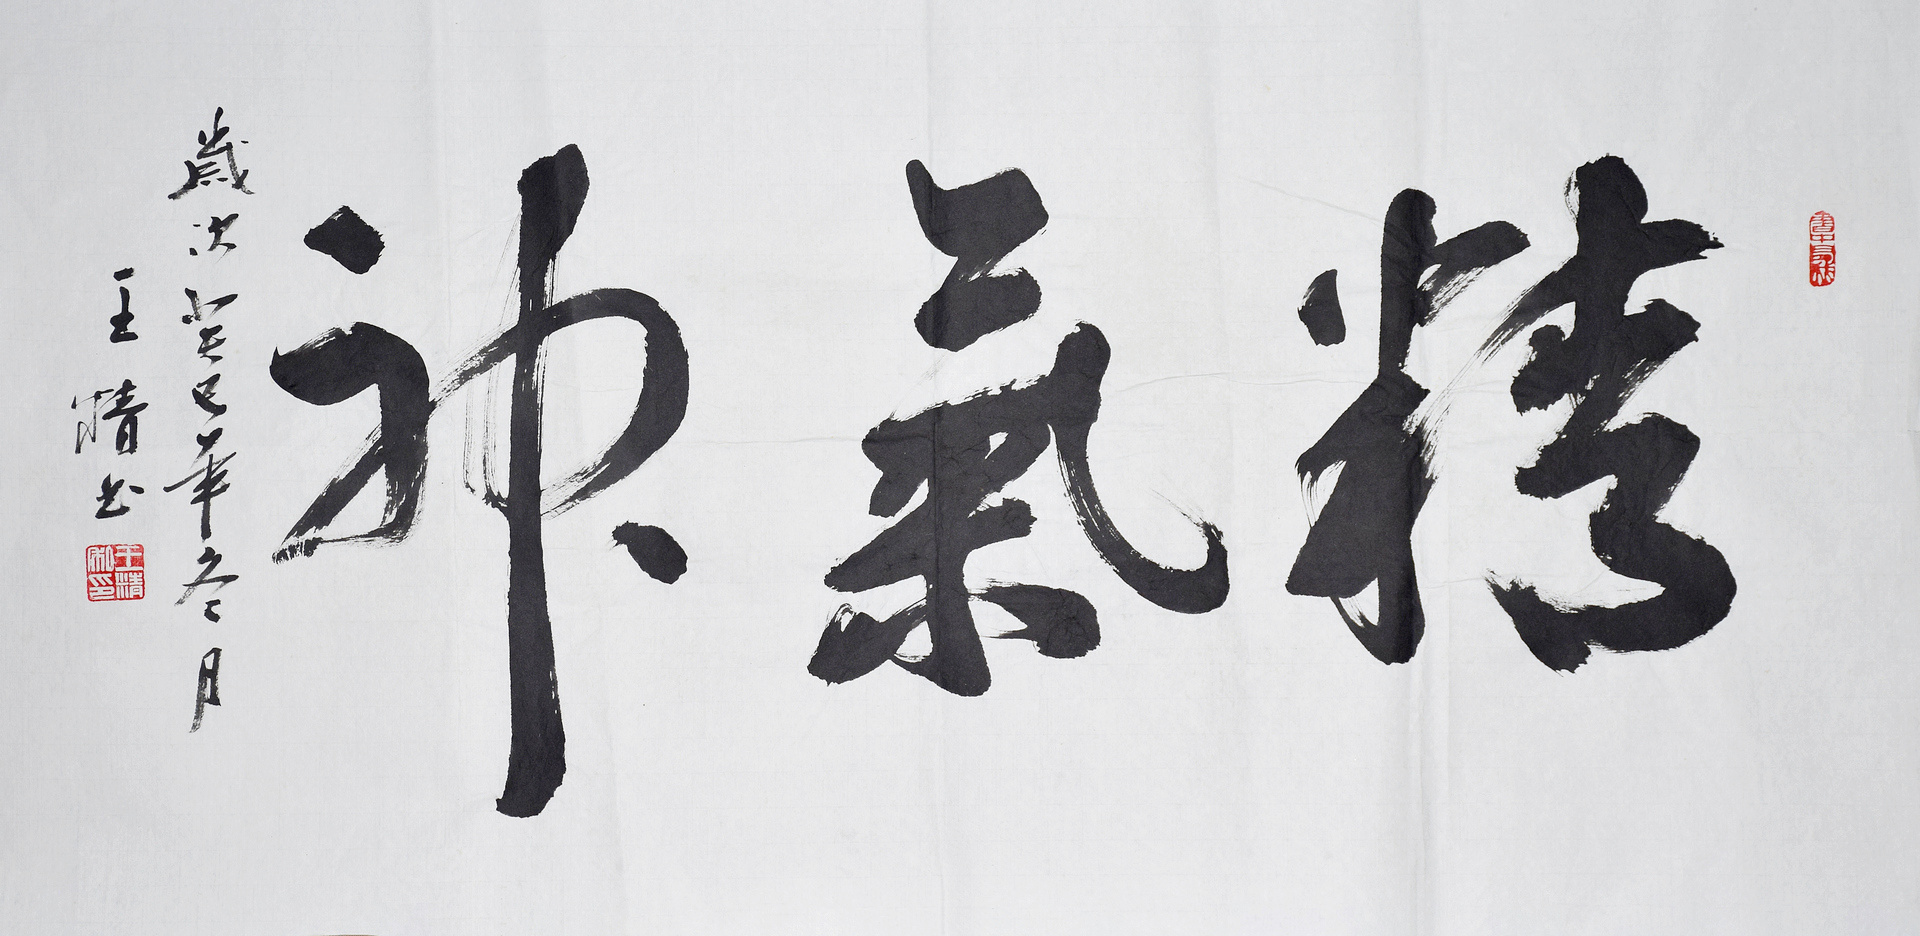 精氣神
歲次癸巳年冬月
王清书
王清私印